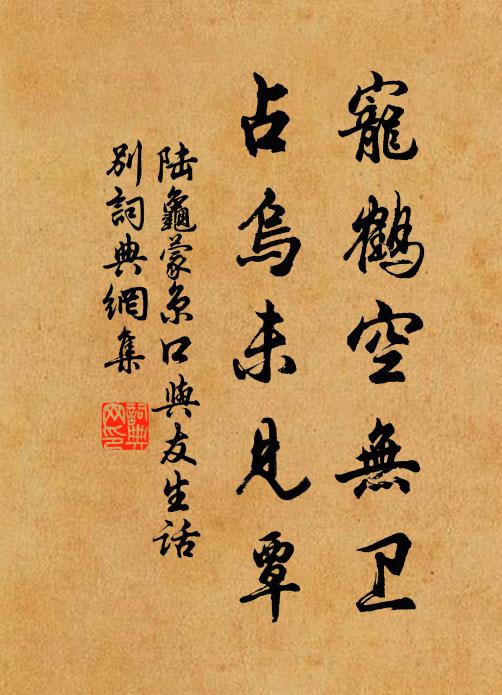 寵鶴空無卫
占烏未見覃
陆龜蒙京口與友生話
别詞典網集
詞典
网印